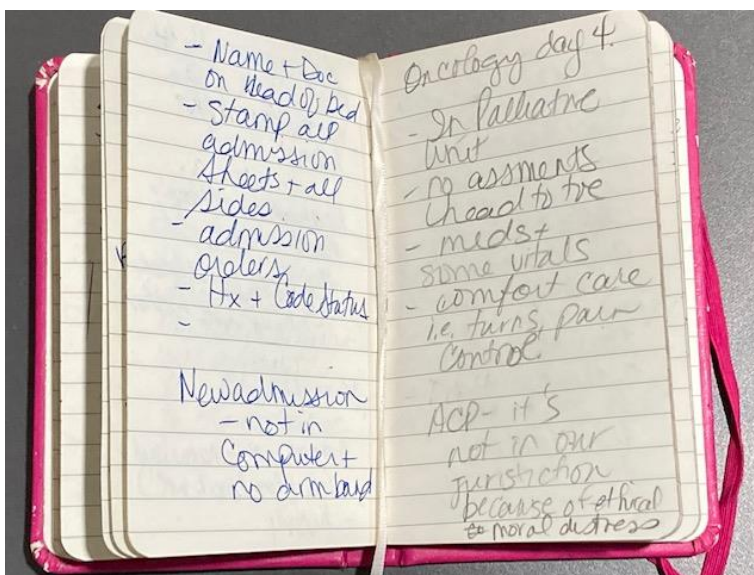 - Name + Doc
on Head of bed
- Stamp all
admission
sheets + all
sides.
- admission
orders
- Hx + Code Status
-
New admission
- not in
Computer +
no armband
Oncology day 4.
- In Palliative
Unit
- no assments
head to toe
- meds +
some vitals
- comfort care
i.e. turns, pain
control
ACP - it's
not in our
juristiction
because of ethical
moral distress